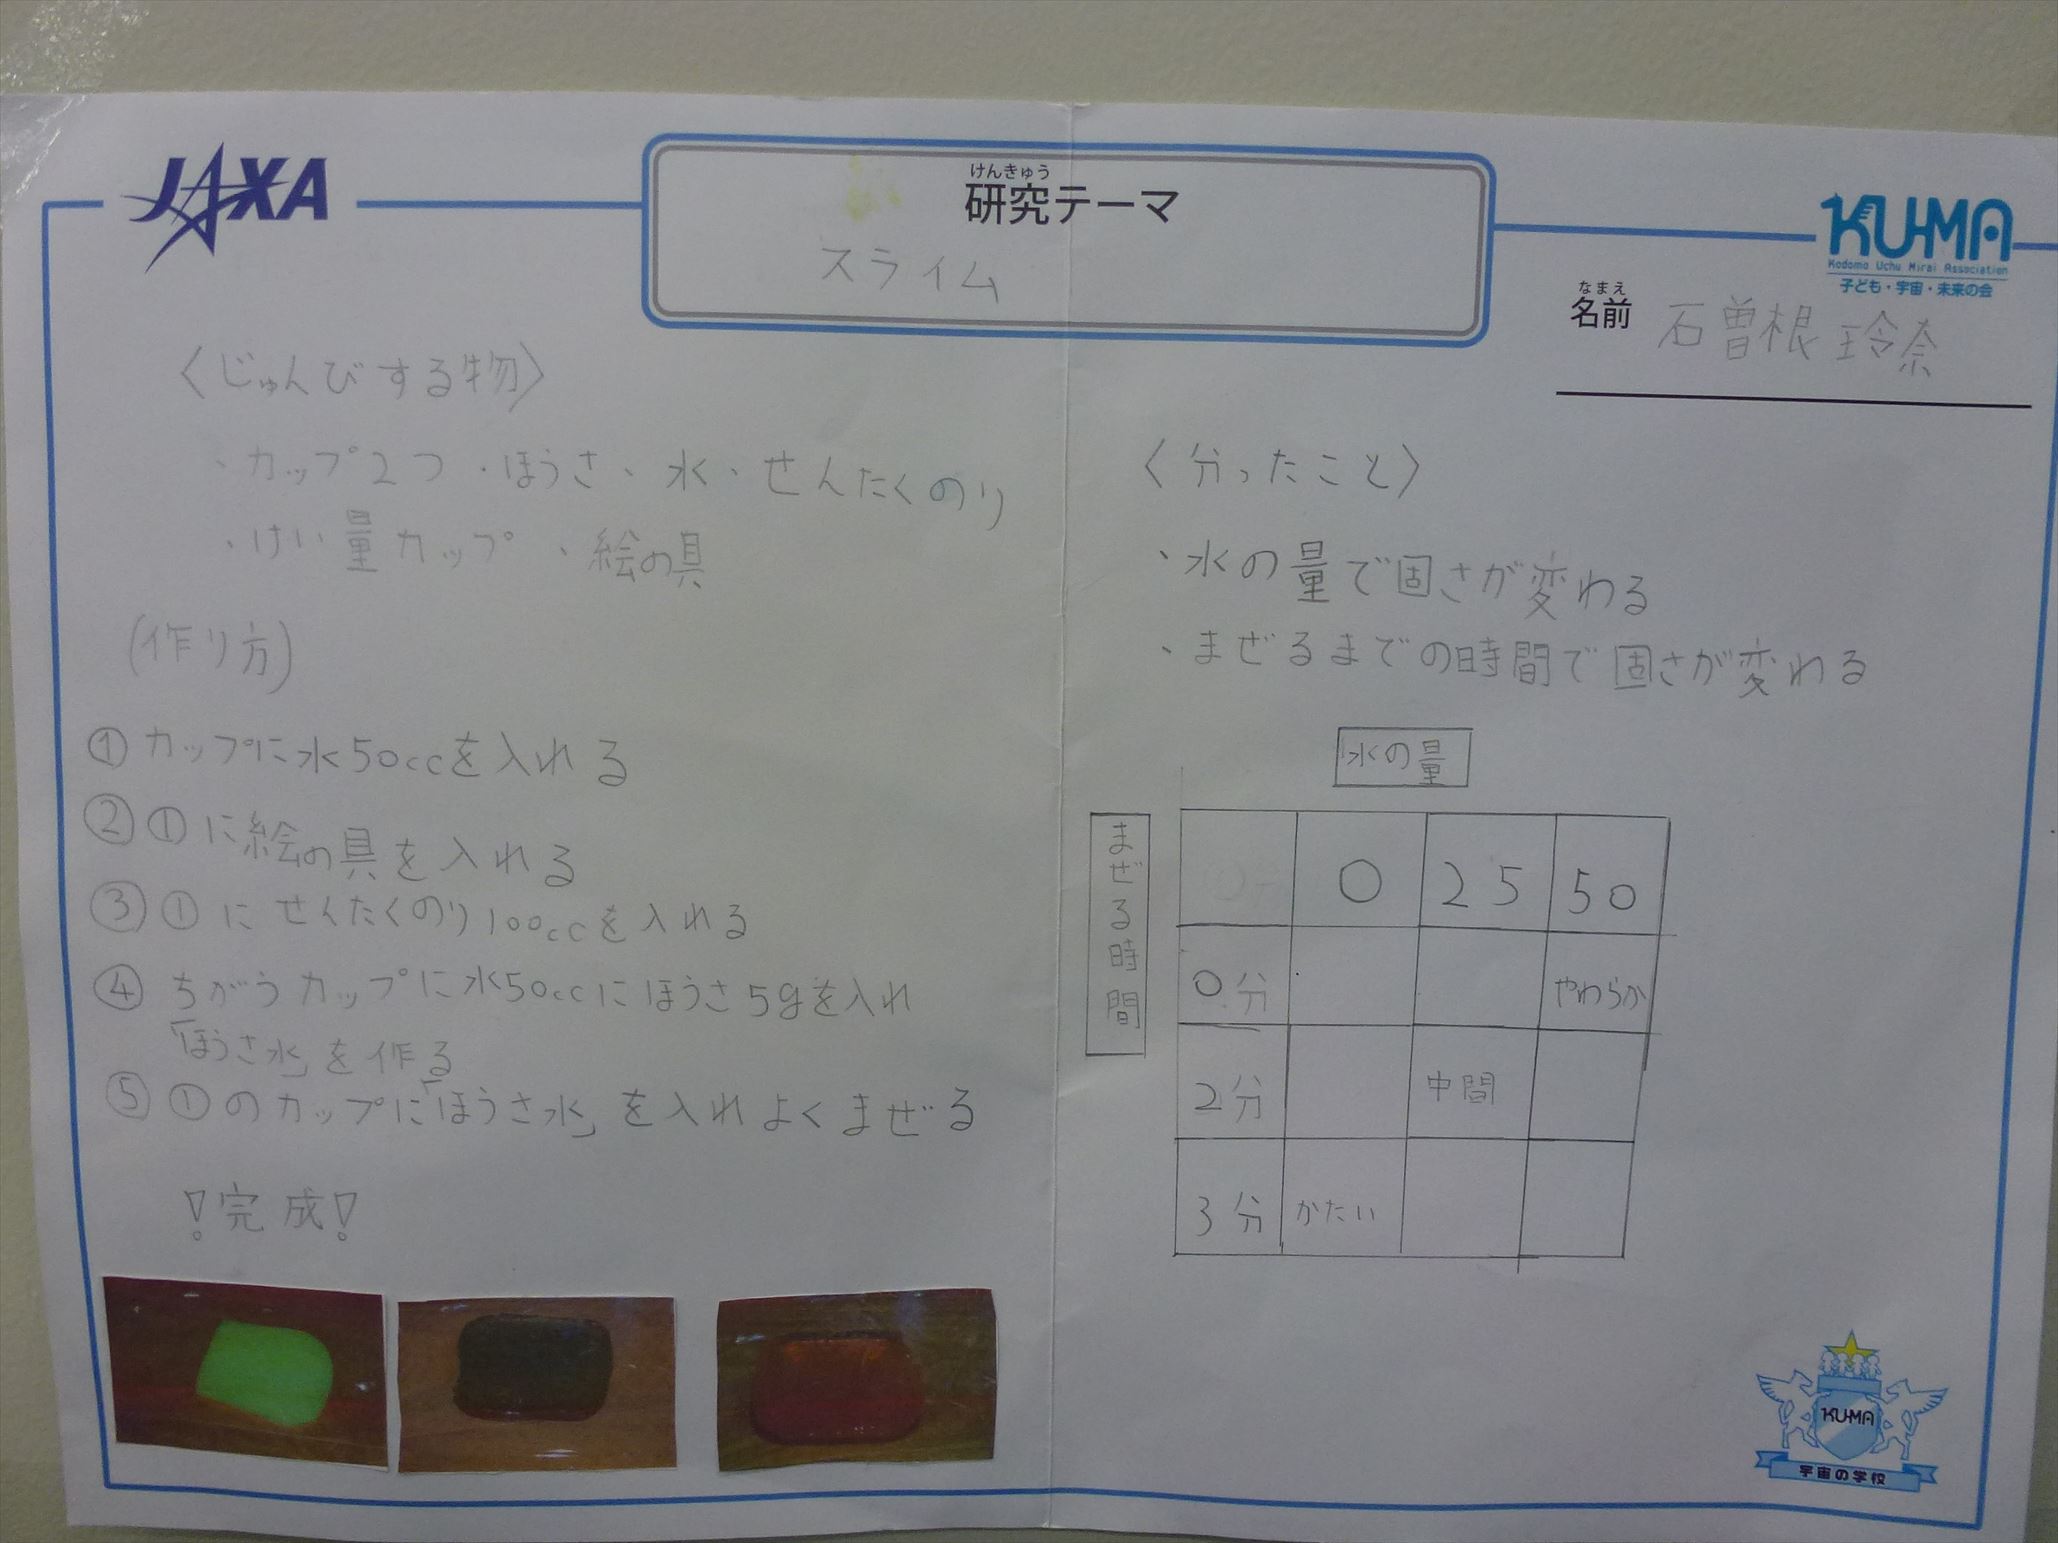 JAXA
けんきゅう
研究テーマ
スライム
KU-MA
Kodomo Uchu Mirai Association
子ども・宇宙・未来の会
なまえ
名前 石曽根 玲奈
〈じゅんびする物〉
・カップ2つ・ほうさ・水・せんたくのり
・けい量カップ ・絵の具
(作り方)
①カップに水50ccを入れる
②①に絵の具を入れる
③①にせんたくのり100ccを入れる
④ちがうカップに水50ccにほうさ5gを入れ
「ほうさ水」を作る
⑤①のカップに「ほうさ水」を入れよくまぜる
!完成!
〈分ったこと〉
・水の量で固さが変わる
・まぜるまでの時間で固さが変わる
水の量
まぜる時間
0 25 50
0分 やわらか
2分 中間
3分 かたい
KU-MA
宇宙の学校